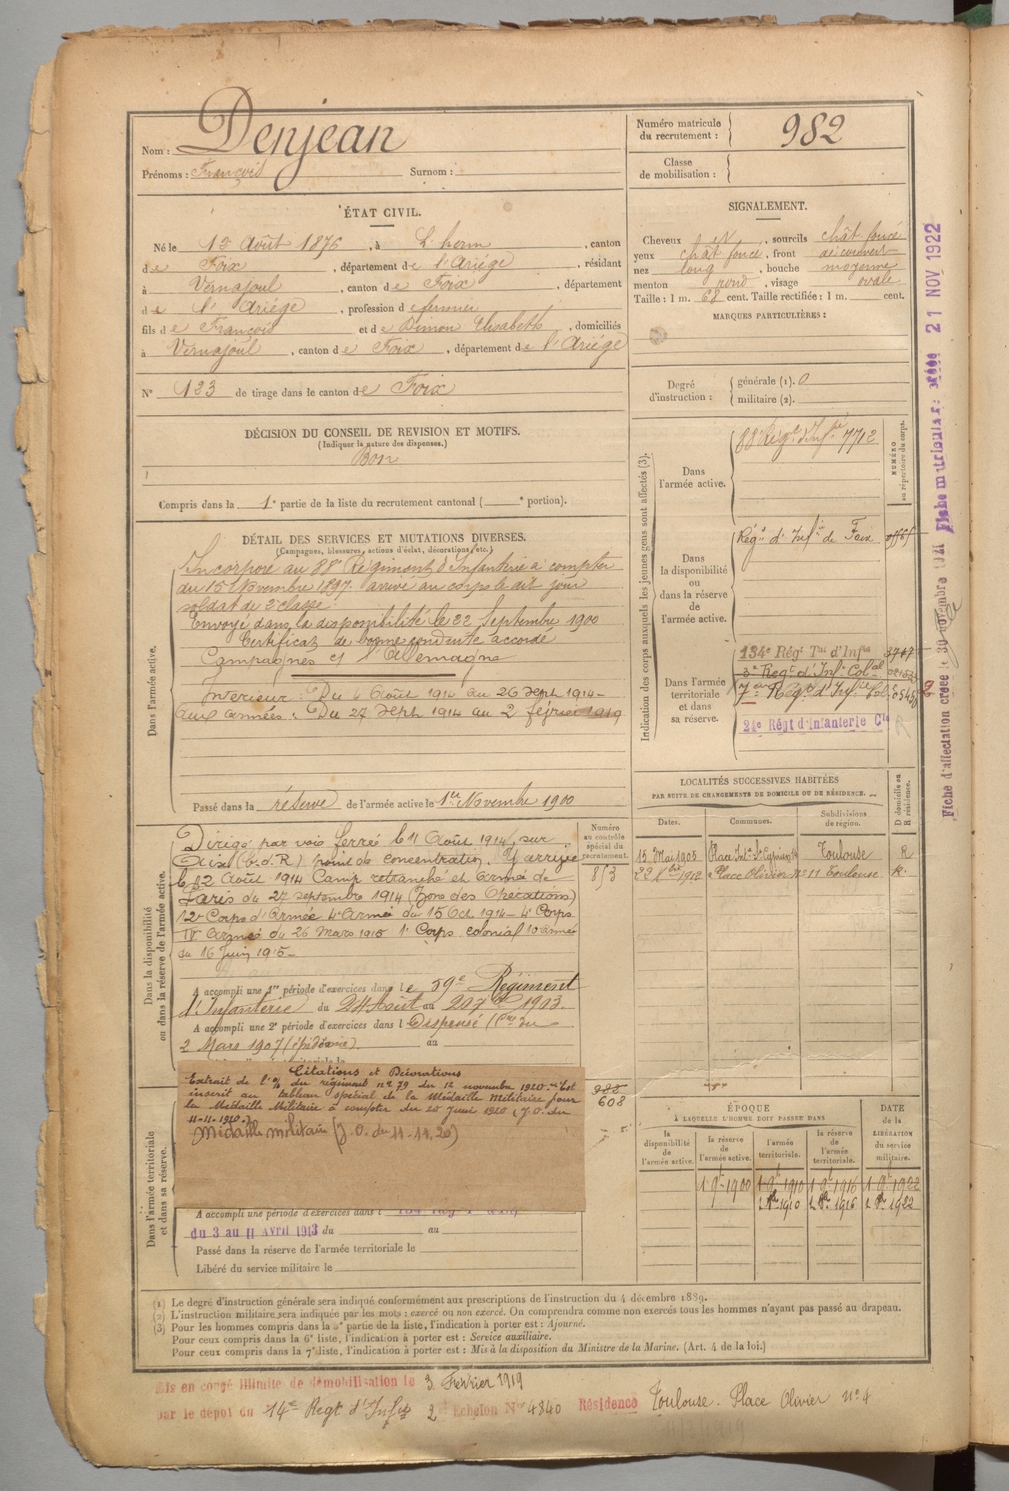 Nom : Denjean
Prénoms : François Surnom :
Numéro matricule du recrutement : 982
Classe de mobilisation :
ÉTAT CIVIL.
Né le 13 Août 1876, à L'herm, canton
de Foix, département de l'Ariége, résidant
à Vernajoul, canton de Foix, département
de l'Ariége, profession de
fils de François et de Dimon Elisabeth, domiciliés
à Vernajoul, canton de Foix, département de l'Ariége
N° 133 de tirage dans le canton de Foix
SIGNALEMENT.
Cheveux N, sourcils chât foncé
yeux chât foncé, front découvert
nez long, bouche moyenne
menton rond, visage ovale
Taille : 1 m. 68 cent. Taille rectifiée : 1 m. cent.
MARQUES PARTICULIÈRES :
Degré d'instruction : générale (1). 0
militaire (2).
DÉCISION DU CONSEIL DE REVISION ET MOTIFS.
(Indiquer la nature des dispenses.)
Bon
Compris dans la 1e partie de la liste du recrutement cantonal ( e portion).
DÉTAIL DES SERVICES ET MUTATIONS DIVERSES.
(Campagnes, blessures, actions d'éclat, décorations, etc.)
Dans l'armée active.
Incorporé au 88e Régiment d'Infanterie à compter
du 15 Novembre 1897 arrivé au corps le dit jour
soldat de 2e classe.
Envoyé dans la disponibilité le 22 Septembre 1900
Certificat de bonne conduite accordé
Campagnes c/ l'Allemagne
Intérieur : Du 4 Août 1914 au 26 Sept 1914-
aux armées : Du 27 Sept 1914 au 2 février 1919
Passé dans la réserve de l'armée active le 1er Novembre 1900
Indication des corps auxquels les jeunes gens sont affectés (3).
NUMÉRO au répertoire du corps.
Dans l'armée active.
88e Régt d'Infrie 7712
Dans la disponibilité ou dans la réserve de l'armée active.
Régt d'Infrie de Foix
Dans l'armée territoriale et dans sa réserve.
134e Régt Tal d'Infie
3e Régt d'Infie Colale
7eme Régt d'Infie Colle
24e Régt d'Infanterie Cle
Fiche d'affectation créée le 30 novembre 1921 Fiche matriculaire créée 21 NOV 1922
Dans la disponibilité ou dans la réserve de l'armée active.
Numéro au contrôle spécial du recrutement.
853
Dirigé par voie ferrée le 11 Août 1914, sur
Aix (b.d.R) point de concentration. Y arrive
le 12 Août 1914 Camp retranché et Armée de
Paris du 27 septembre 1914 (Zone des Opérations)
12e Corps d'Armée 4e Armée du 15 Oct 1914 - 4e Corps
IVe Armée du 26 Mars 1915 1er Corps colonial 10e armée
du 16 Juin 1915 -
A accompli une 1re période d'exercices dans le 59e Régiment
d'Infanterie du 24 Août au 20 7bre 1903.
A accompli une 2e période d'exercices dans l Dispensé
2 Mars 1907 (épidémie) au
Citations et Décorations
Extrait de l'o/ du régiment n° 79 du 12 novembre 1920. Est
inscrit au tableau spécial de la Médaille militaire pour
la Médaille Militaire à compter du 20 Juin 1920 (J.O. du
11-11-1920.)
Médaille militaire (J.O. du 11-11.20)
982
608
Dans l'armée territoriale et dans sa réserve.
A accompli une période d'exercices dans l
du 3 au 11 Avril 1913 du au
Passé dans la réserve de l'armée territoriale le
Libéré du service militaire le
LOCALITÉS SUCCESSIVES HABITÉES
PAR SUITE DE CHANGEMENTS DE DOMICILE OU DE RÉSIDENCE.
Dates. Communes. Subdivisions de région. D domicile ou R résidence.
15 Mai 1905 Toulouse R
Place Olivier N° 11 Toulouse R.
ÉPOQUE
À LAQUELLE L'HOMME DOIT PASSER DANS
DATE de la LIBÉRATION du service militaire.
la disponibilité de l'armée active. la réserve de l'armée active. l'armée territoriale. la réserve de l'armée territoriale.
1 9bre 1900 1 9bre 1910 1 9bre 1916 1 9bre 1922
(1) Le degré d'instruction générale sera indiqué conformément aux prescriptions de l'instruction du 4 décembre 1889.
(2) L'instruction militaire sera indiquée par les mots : exercé ou non exercé. On comprendra comme non exercés tous les hommes n'ayant pas passé au drapeau.
(3) Pour les hommes compris dans la 2e partie de la liste, l'indication à porter est : Ajourné.
Pour ceux compris dans la 6e liste, l'indication à porter est : Service auxiliaire.
Pour ceux compris dans la 7e liste, l'indication à porter est : Mis à la disposition du Ministre de la Marine. (Art. 4 de la loi.)
Mis en congé illimité de démobilisation le 3 Février 1919
par le dépôt du 14e Régt d'Infrie 2e Echelon N° 4340 Résidence Toulouse. Place Olivier n° 4